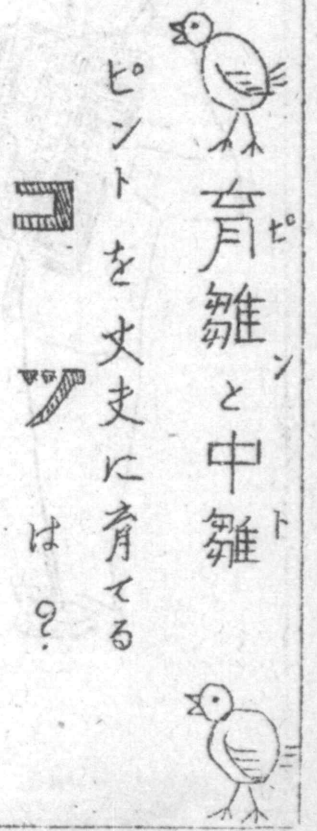 育雛と中雛
ピント
ピントを丈夫に育てる
コツは?